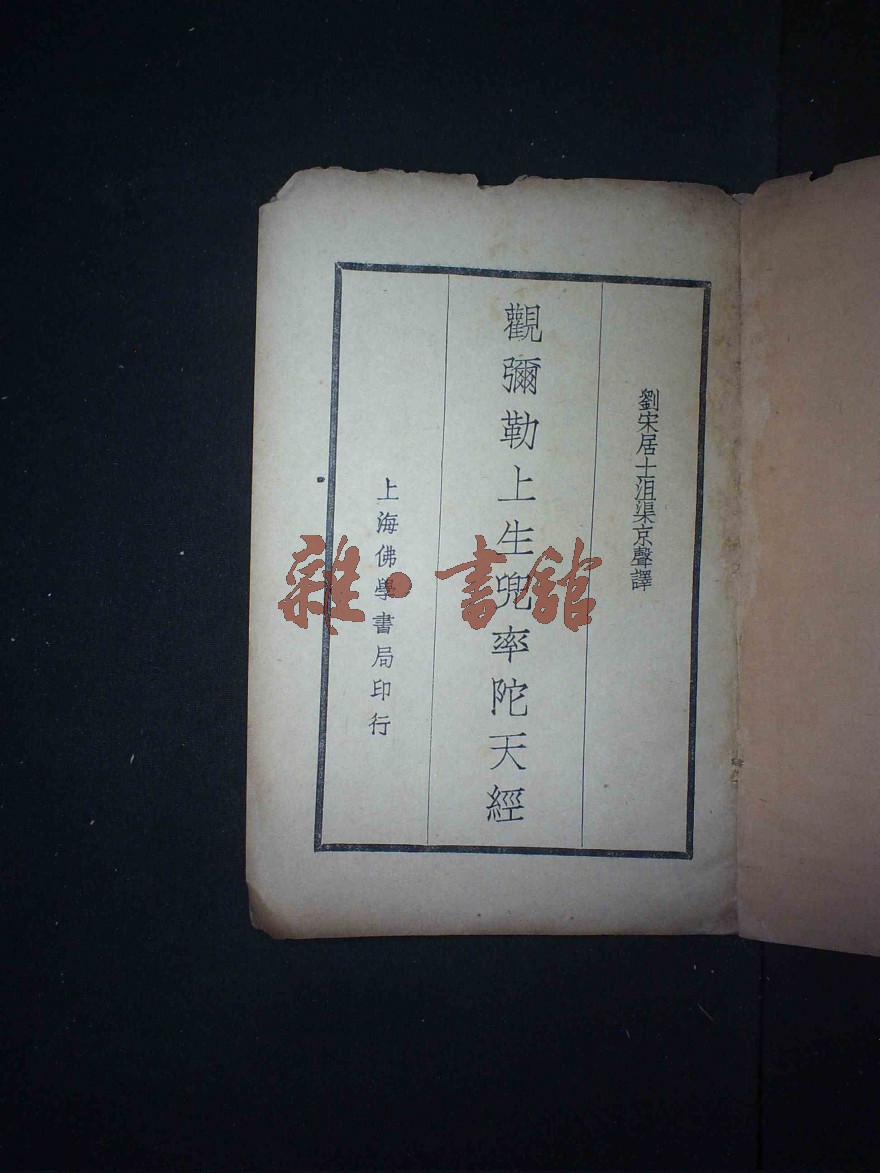 劉宋居士沮渠京聲譯
觀彌勒上生兜率陀天經
上海佛學書局印行
雜·書館